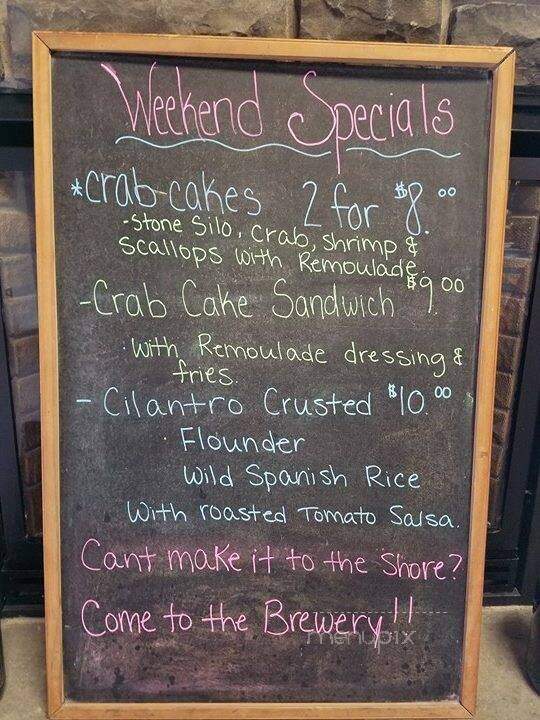 Weekend Specials
*crab-cakes 2 for $8.00
-Stone Silo, crab, shrimp &
Scallops with Remoulade.
-Crab Cake Sandwich $9.00
·With Remoulade dressing &
fries.
- Cilantro Crusted $10.00
· Flounder
Wild Spanish Rice
With roasted Tomato Salsa.
Cant make it to the Shore?
Come to the Brewery!!
menupix